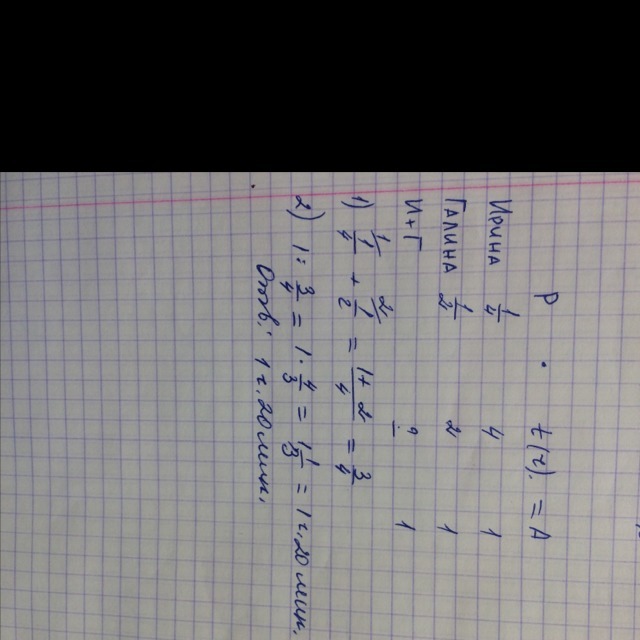 P · t(г). = A
Ирина 1/4 4 1
Галина 1/2 2 1
И+Г ? 1
1) 1/4 + 1/2 = 1+2/4 = 3/4
2) 1 : 3/4 = 1 · 4/3 = 1 1/3 = 1 г. 20 мин.
Отв.: 1 г. 20 мин.